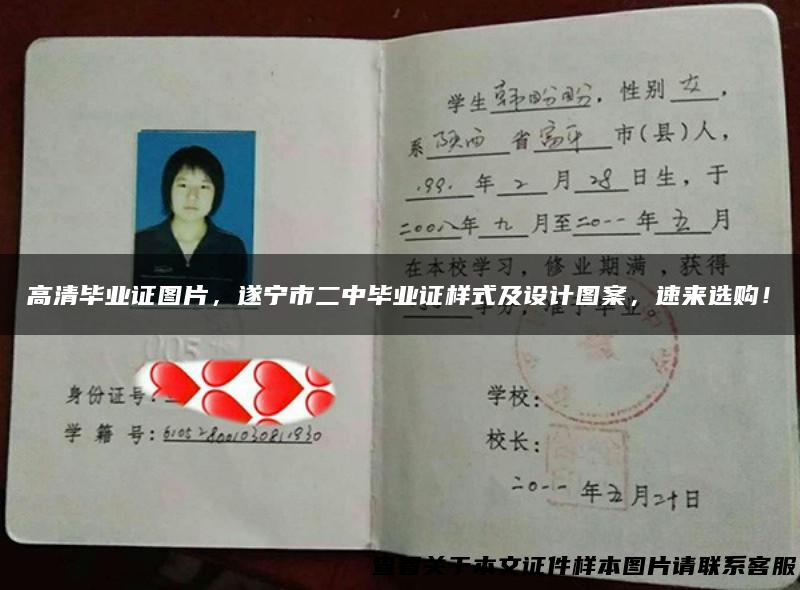 学生韩盼盼，性别女，
系陕西省富平市(县)人，
1991年2月28日生，于
二00八年九月至二0一一年五月
在本校学习，修业期满，获得
高清毕业证图片，遂宁市二中毕业证样式及设计图案，速来选购！
学分，准予毕业。
005
身份证号：
学籍号：610528001030811930
学校：
校长：
二0一一年五月二十日
查看关于本文证件样本图片请联系客服